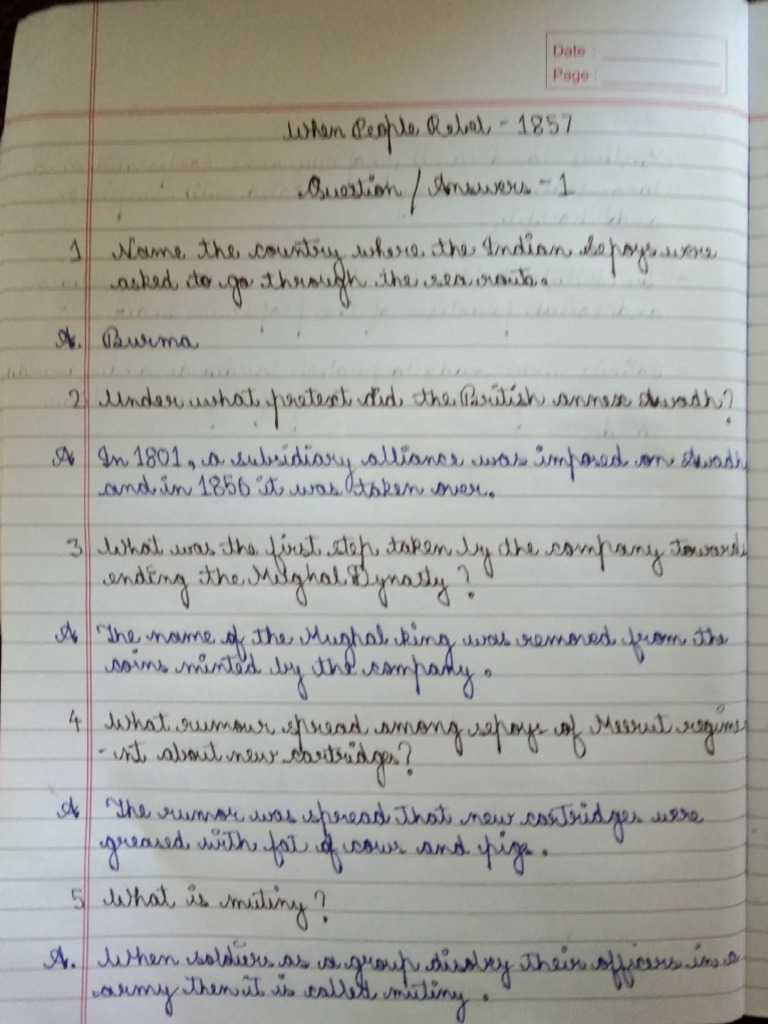 Date :
Page :
When People Rebel - 1857
Question / Answers - 1
1 Name the country where the Indian Sepoys were
asked to go through the sea route.
A. Burma
2 Under what pretext did the British annex Awadh?
A In 1801, a subsidiary alliance was imposed on Awadh
and in 1856 it was taken over.
3 What was the first step taken by the company towards
ending the Mughal Dynasty?
A The name of the Mughal king was removed from the
coins minted by the company.
4 What rumour spread among sepoys of Meerut regime
-nt about new cartridges?
A The rumor was spread that new cartridges were
greased with fat of cows and pigs.
5 What is mutiny?
A. When soldiers as a group disobey their officers in a
army then it is called mutiny.